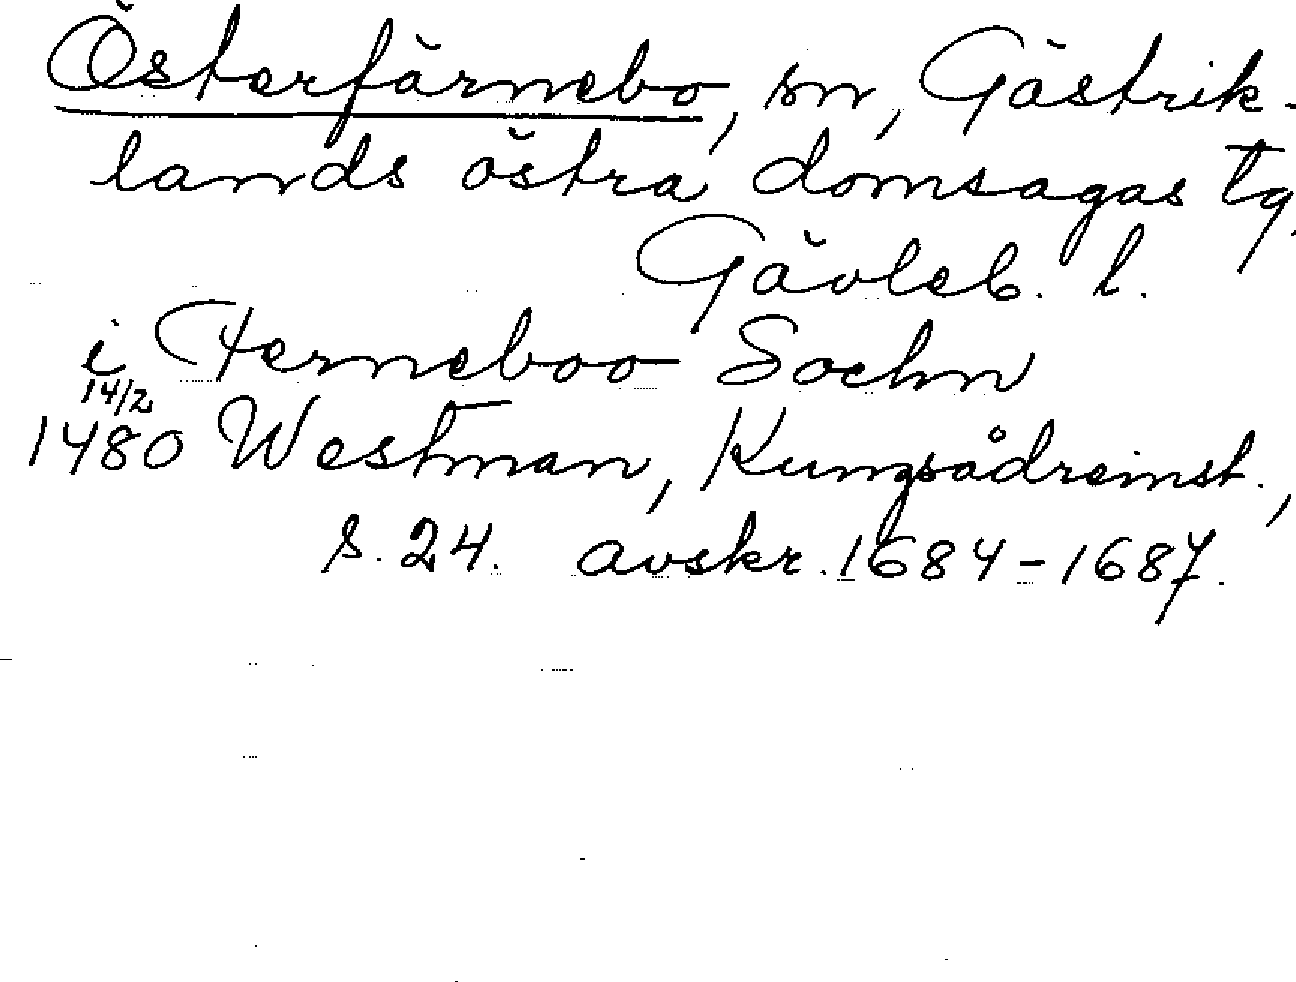 Österfärnebo, sn, Gästrik-
lands östra domsagas tg,
Gävleb. l.
i Ferneboo Sochn
14/2
1480 Westman, Kungsådreinst.,
s. 24. avskr. 1684-1687.